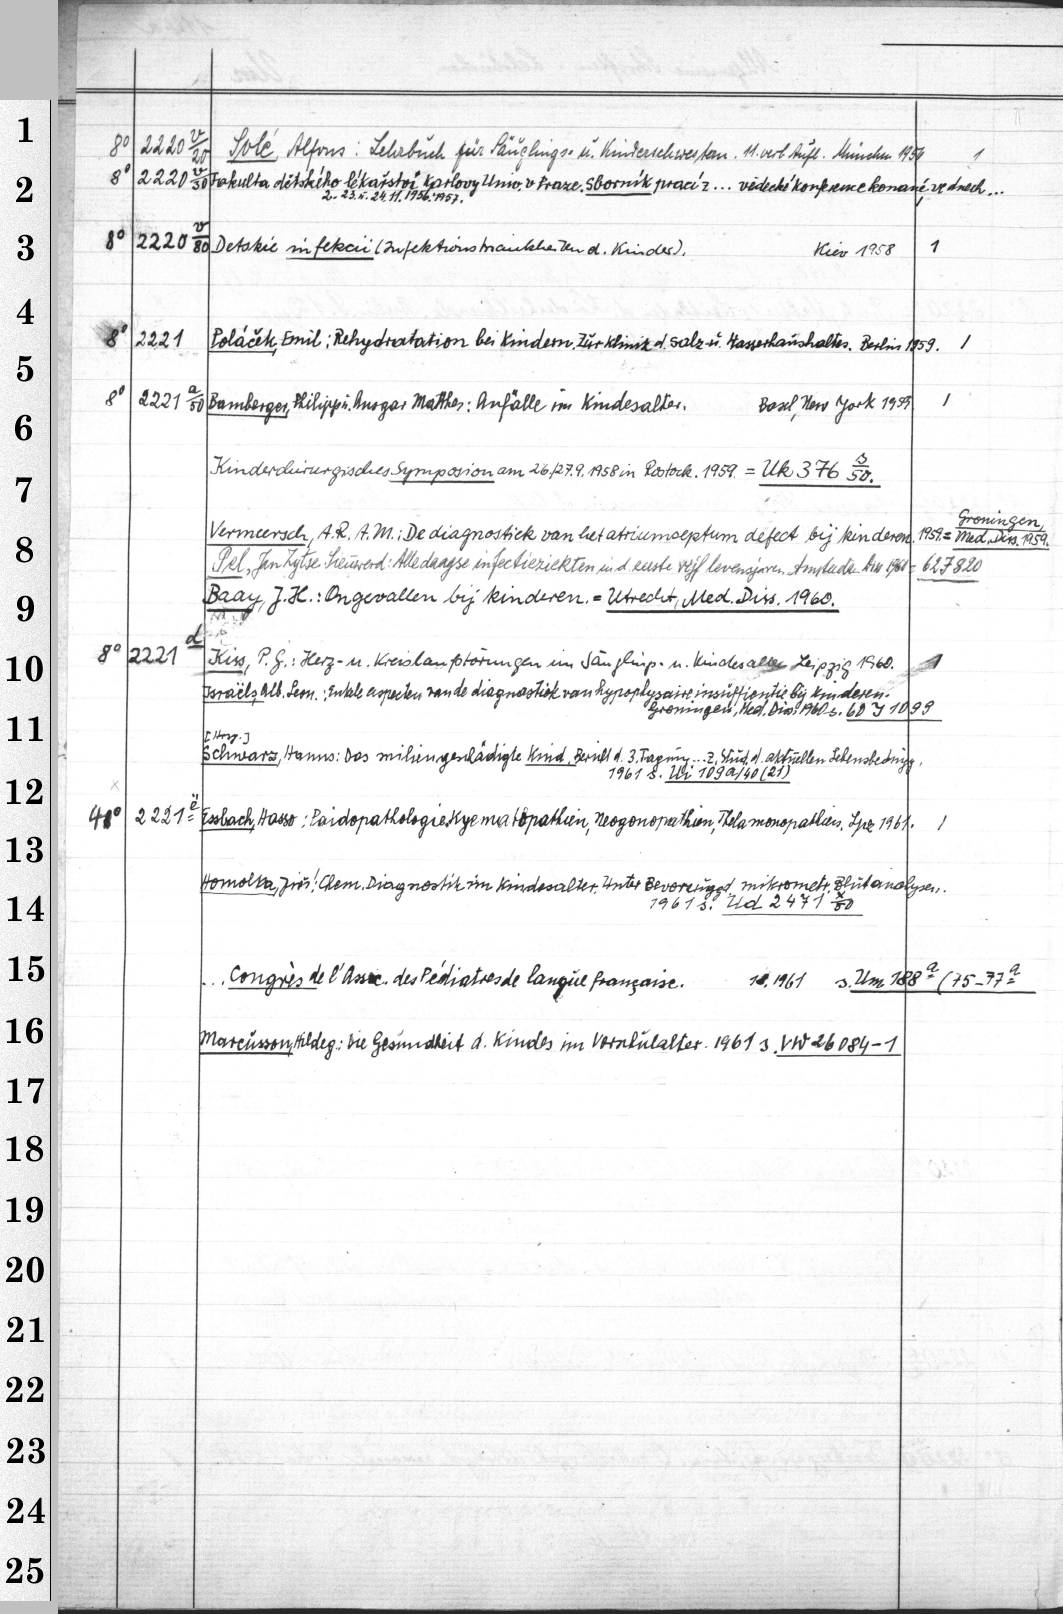 1
8° 2220 v/20 Solé, Alfons: Lehrbuch für Säuglings- u. Kinderschwestern. 11. verb. Aufl. München 1950 1
2
8° 2220 v/50 Fakulta dětského lékařství Karlovy Univ. v Praze. Sborník prací z ... vědecké konference konané, ve dnech ...
2. 23. u. 24.11.1956. 1957.
3
8° 2220 v/80 Detskie infekcii (Infektionskrankheiten d. Kinder). Kiev 1958 1
4
8° 2221 Poláček, Emil: Rehydratation bei Kindern. Zur Klinik d. Salz- u. Wasserhaushaltes. Berlin 1959. 1
5
8° 2221 a/50 Bamberger, Philipp u. Ansgar Matthes: Anfälle im Kindesalter. Basel, New York 1959 1
6
Kinderchirurgisches Symposion am 26./27.9.1958 in Rostock. 1959. = Uk 376 s/50.
7
Groningen,
Vermeersch, A.R. A.M.: De diagnostiek van het atriumseptum defect bij kinderen. 1959. = Med. Diss. 1959.
8
Pel, Jan Zytse Sieuwerd: Alledaagse infectieziekten in d eerste vijf levensjaren. Amsterdam Diss 1960 = 627820
9
Baay, J.H.: Ongevallen bij kinderen. = Utrecht, Med. Diss. 1960.
10
8° 2221 d Kiss, P.G.: Herz- u. Kreislaufstörungen im Säuglings- u. Kindesalter Leipzig 1960. 1
Israëls, Alb. Leon.: Enkele aspecten van de diagnostiek van hypophysaire insufficientie bij kinderen.
Groningen, Med. Diss. 1960 s. 60 J 1099
11
[Hrsg.]
Schwarz, Hanns: Das milieugeschädigte Kind. Bericht d. 3. Tagung ... z. Stud. d. aktuellen Lebensbeding.
1961 s. Ui 109a/40 (21)
12
4° 2221 ë Essbach, Hasso: Paidopathologie. Kyematopathien, Neogonopathien, Thelamonopathien. Lpz 1961. 1
13
Homolka, Jiří: Chem. Diagnostik im Kindesalter. Unter Bevorzugg d. mikrometr. Blutanalysen.
1961 s. Ud 2471 x/50
14
15
... Congrès de l'Assoc. des Pédiatres de langue française. 18. 1961 s. Um 188 a (75-77 a
16
Marcusson, Hildeg.: Die Gesundheit d. Kindes im Vorschulalter. 1961 s. VW 26084-1
17
18
19
20
21
22
23
24
25